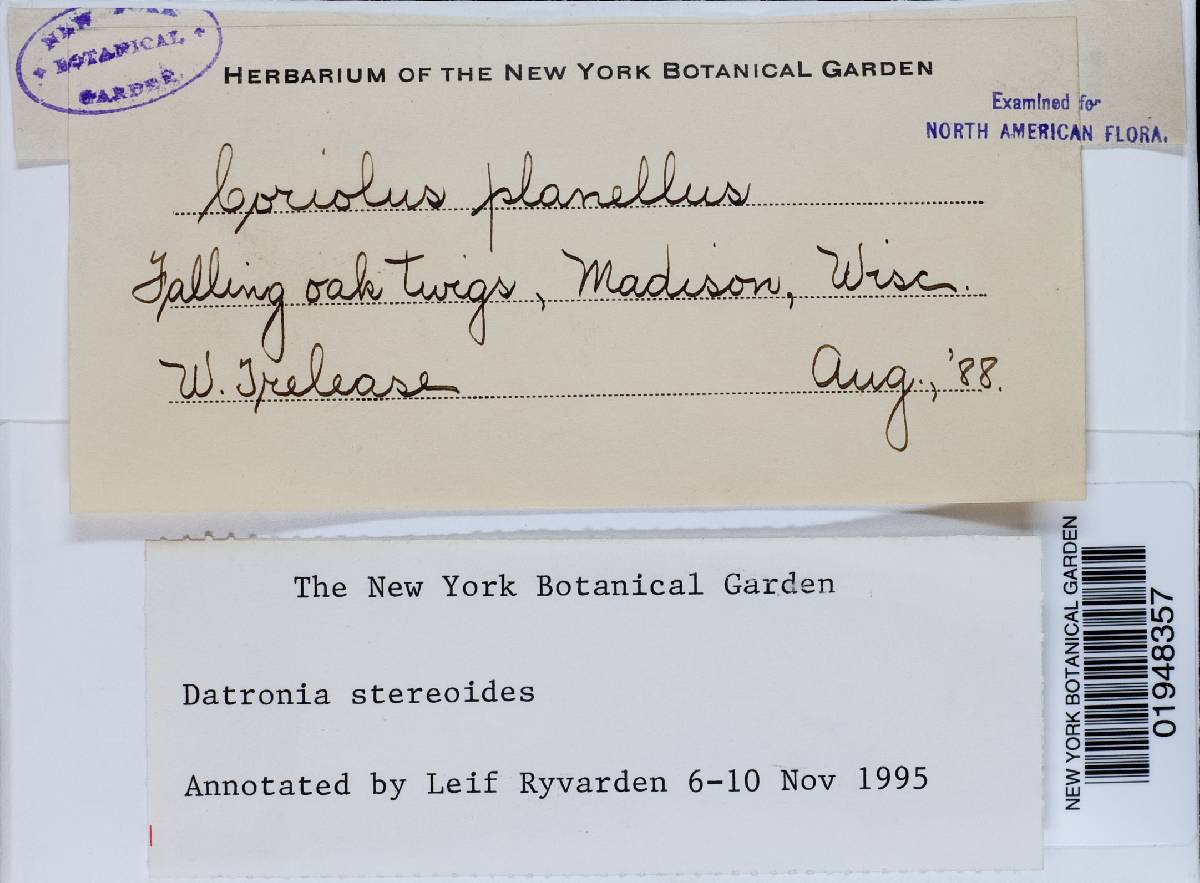 NEW YORK
BOTANICAL
GARDEN
HERBARIUM OF THE NEW YORK BOTANICAL GARDEN
Examined for
NORTH AMERICAN FLORA.
Coriolus planellus
Falling oak twigs, Madison, Wisc.
W. Trelease Aug., '88.
The New York Botanical Garden
Datronia stereoides
Annotated by Leif Ryvarden 6-10 Nov 1995
NEW YORK BOTANICAL GARDEN
01948357